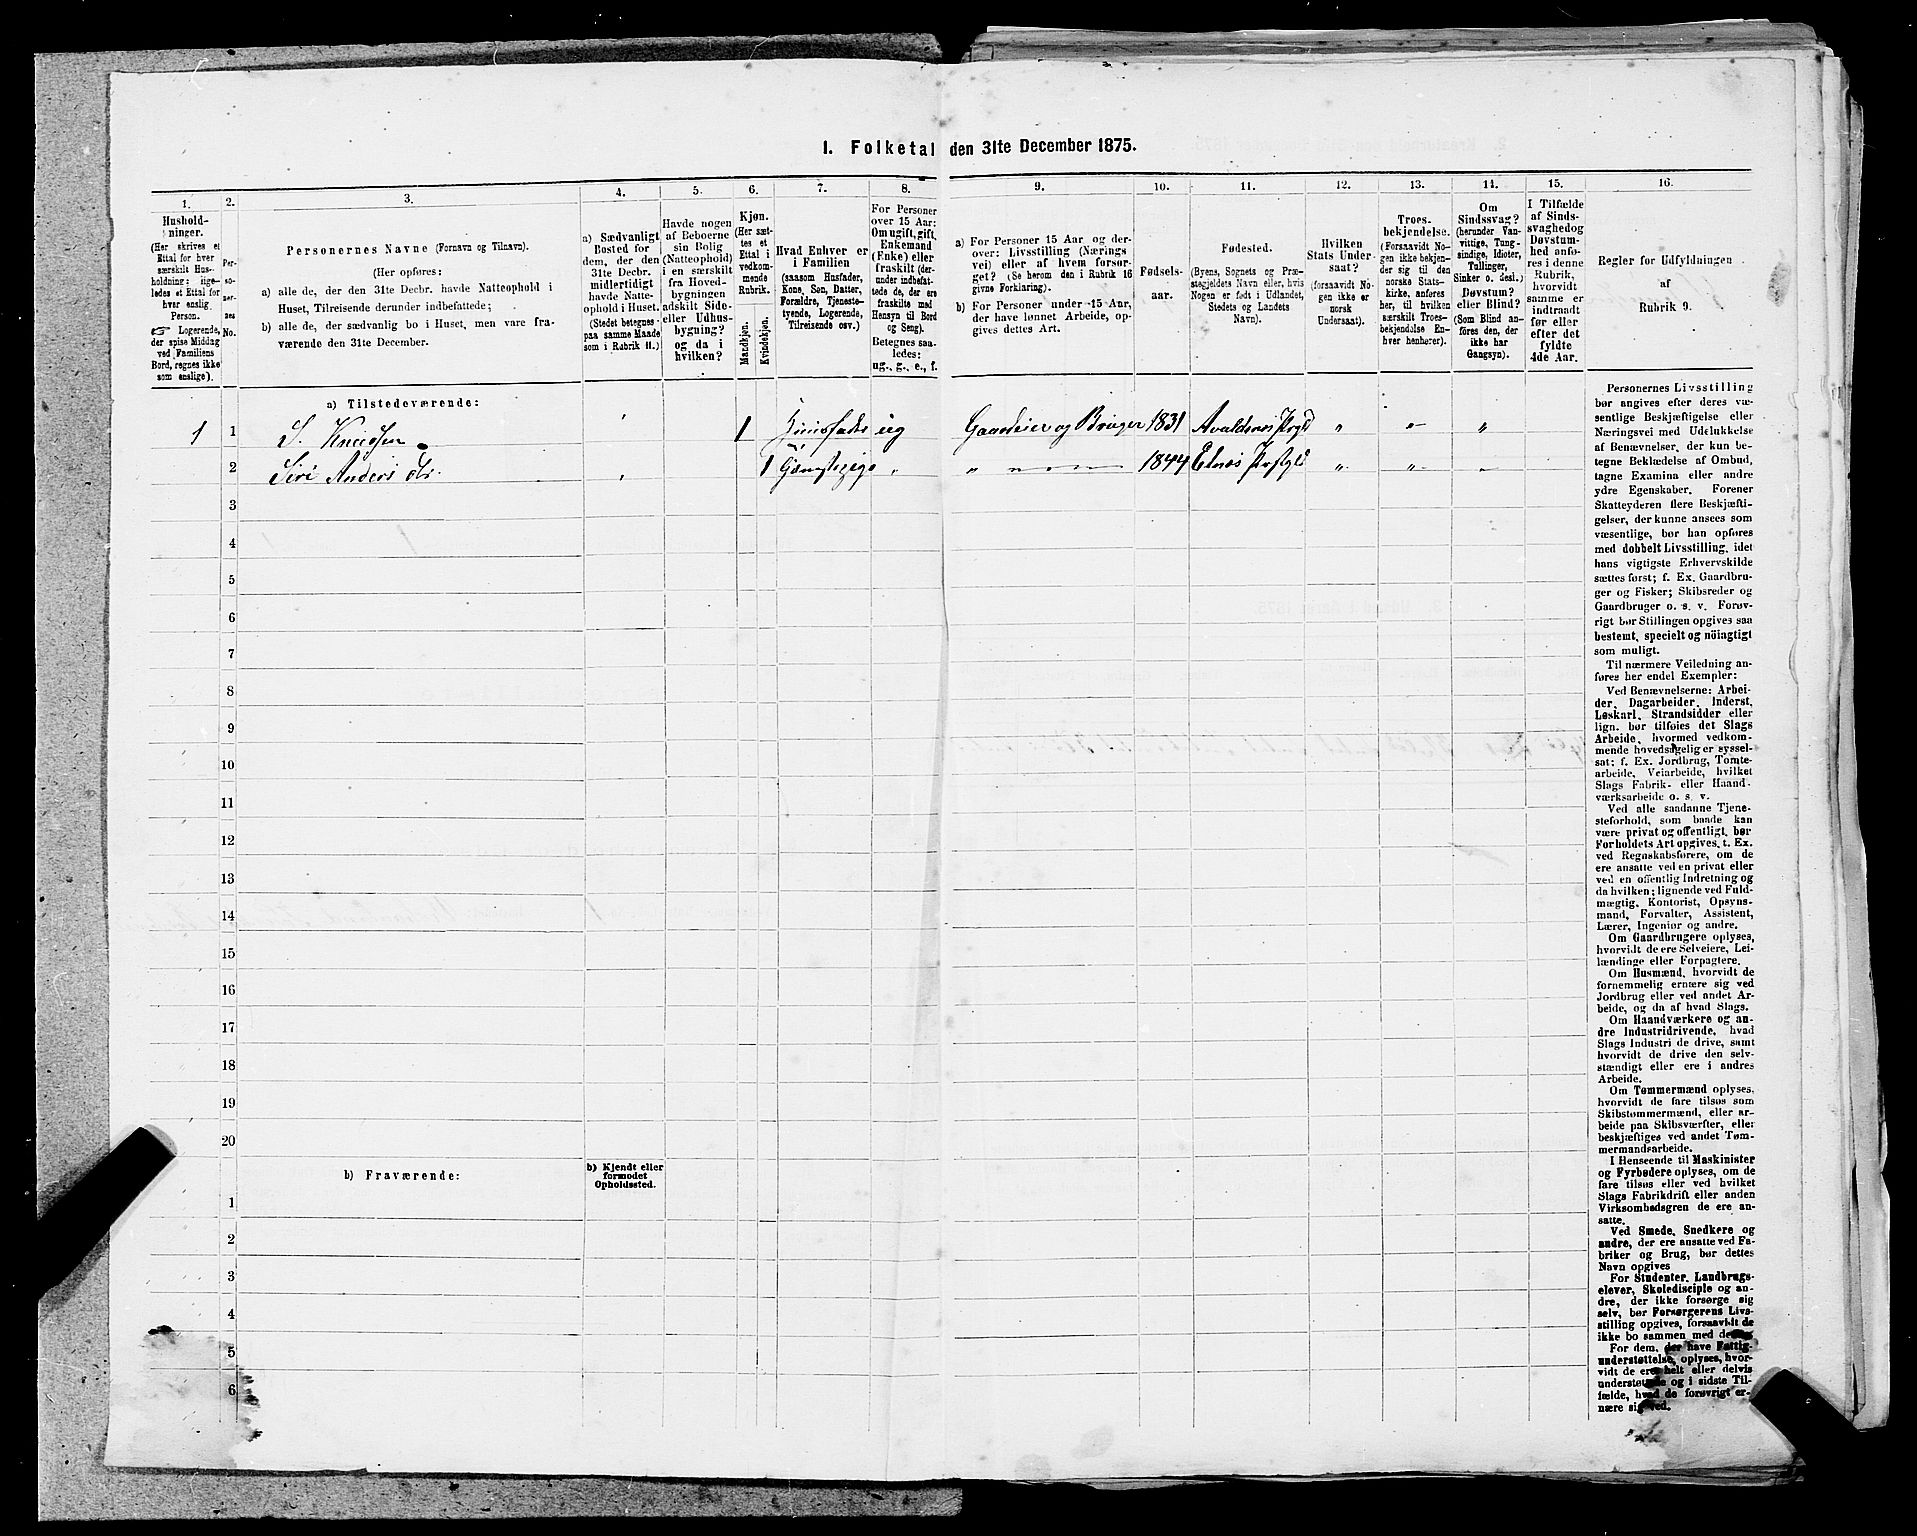 1. Folketal den 31te December 1875.
1.
Hushold-
ninger.
(Her skrives et
Ettal for hver
særskilt Hus-
holdning; lige-
ledes et Ettal for
hver enslig
Person.
☞ Logerende,
der spise Middag
ved Familiens
Bord, regnes ikke
som enslige).
2.
Per-
so-
ner-
nes
No.
3.
Personernes Navne (Fornavn og Tilnavn).
(Her opføres:
a) alle de, der den 31te Decbr. havde Natteophold i
Huset, Tilreisende derunder indbefattede;
b) alle de, der sædvanlig bo i Huset, men vare fra-
værende den 31te December.
4.
a) Sædvanligt
Bosted for
dem, der den
31te Decbr.
midlertidigt
havde Natte-
ophold i Huset.
(Stedet betegnes
paa samme Maade
som i Rubrik 11.)
5.
Havde nogen
af Beboerne
sin Bolig
(Natteophold)
i en særskilt
fra Hoved-
bygningen
adskilt Side-
eller Udhus-
bygning?
og da i
hvilken?
6.
Kjøn.
(Her sæt-
tes et
Ettal i
vedkom-
mende
Rubrik.
Mandkjøn.
Kvindekjøn.
7.
Hvad Enhver er
i Familien
(saasom Husfader,
Kone, Søn, Datter,
Forældre, Tjeneste-
tyende, Logerende,
Tilreisende osv.)
8.
For Personer
over 15 Aar:
Om ugift, gift,
Enkemand
(Enke) eller
fraskilt (der-
under indbefat-
tede de, der ere
fraskilte med
Hensyn til Bord
og Seng).
Betegnes saa-
ledes:
ug., g., e., f.
9.
a) For Personer 15 Aar og der-
over: Livsstilling (Nærings
vei) eller af hvem forsør-
get? (Se herom den i Rubrik 16
givne Forklaring).
b) For Personer under 15 Aar,
der have lønnet Arbeide, op-
gives dettes Art.
10.
Fødsels-
aar.
11.
Fødested.
(Byens, Sognets og Præ-
stegjeldets Navn eller, hvis
Nogen er født i Udlandet,
Stedets og Landets
Navn).
12.
Hvilken
Stats Under-
saat?
(forsaavidt No-
gen ikke er
norsk
Undersaat).
13.
Troes-
bekjendelse.
(Forsaavidt No-
gen ikke bekjen-
der sig til den
norske Stats-
kirke, anføres
her, til hvilken
særskilt Troes-
bekjendelse En-
hver henhører).
14.
Om
Sindssvag?
(herunder Van-
vittige, Tung-
sindige, Idioter,
Tullinger,
Sinker o. desl.)
Døvstum?
eller Blind?
(Som Blind an-
føres den, der
ikke har
Gangsyn).
15.
I Tilfælde
af Sinds-
svaghed og
Døvstum-
hed anfø-
res i denne
Rubrik,
hvorvidt
samme er
indtraadt
før eller
efter det
fyldte
4de Aar.
16.
Regler for Udfyldningen
af
Rubrik 9.
a) Tilstedeværende:
1 1 S. Knudsen 1 Huusfader ug Gaardeier og Bruger 1831 Avaldsnes Prgld " " "
2 Siri Anders dtr. 1 " " 1844 Etnes Prstgld " " "
3
4
5
6
7
8
9
10
11
12
13
14
15
16
17
18
19
20
b) Fraværende:
b) Kjendt eller
formodet
Opholdssted.
1
2
3
4
5
6
Personernes Livsstilling
bør angives efter deres væ-
sentlige Beskjæftigelse eller
Næringsvei med Udelukkelse
af Benævnelser, der kun be-
tegne Beklædelse af Ombud,
tagne Examina eller andre
ydre Egenskaber. Forener
Skatteyderen flere Beskjæfti-
gelser, der kunne ansees som
væsentlige, bør han opføres
med dobbelt Livsstilling, idet
hans vigtigste Erhvervskilde
sættes først; f. Ex. Gaardbru-
ger og Fisker; Skibsreder og
Gaardbruger o. s. v. Forøv-
rigt bør Stillingen opgives saa
bestemt, specielt og nöiagtigt
som muligt.
Til nærmere Veiledning an-
føres her endel Exempler:
Ved Benævnelserne: Arbei-
der, Dagarbeider, Inderst,
Løskarl, Strandsidder eller
lign. bør tilføies det Slags
Arbeide, hvormed vedkom-
mende hovedsagelig er syssel-
sat; f. Ex. Jordbrug, Tomte-
arbeide, Veiarbeide, hvilket
Slags Fabrik- eller Haand-
værksarbeide o. s. v.
Ved alle saadanne Tjene-
steforhold, som baade kan
være privat og offentligt, bør
Forholdets Art opgives, t. Ex.
ved Regnskabsførere, om de
ere ansatte ved en privat eller
ved en offentlig Indretning og
da hvilken; lignende ved Fuld-
mægtig, Kontorist, Opsyns-
mand, Forvalter, Assistent,
Lærer, Ingeniør og andre.
Om Gaardbrugere oplyses,
hvorvidt de ere Selveiere, Lei-
lændinge eller Forpagtere.
Om Husmænd, hvorvidt de
fornemmelig ernære sig ved
Jordbrug eller ved andet Ar-
beide, og da af hvad Slags.
Om Haandværkere og an-
dre Industridrivende, hvad
Slags Industri de drive, samt
hvorvidt de drive den selv-
stændigt eller ere i andres
Arbeide.
Om Tømmermænd oplyses,
hvorvidt de fare tilsøs som
Skibstømmermænd, eller ar-
beide paa Skibsværfter, eller
beskjæftiges ved andet Tøm-
mermandsarbeide.
I Henseende til Maskinister
og Fyrbødere oplyses, om de
fare tilsøs eller ved hvilket
Slags Fabrikdrift eller anden
Virksombedsgren de ere an-
satte.
Ved Smede, Snedkere og
andre, der ere ansatte ved Fa-
briker og Brug, bør dettes
Navn opgives
For Studenter, Landbrugs-
elever, Skoledisciple og an-
dre, der ikke forsørge sig
selv, bør Forsørgerens Livs-
stilling opgives, forsaavidt de
ikke bo sammen med denne
For dem, der have Fattig-
understøttelse, oplyses, hvor-
vidt de ere helt eller delvis
understøttede og i sidste Til-
fælde, hvad de forøvrigt er-
nære sig ved.